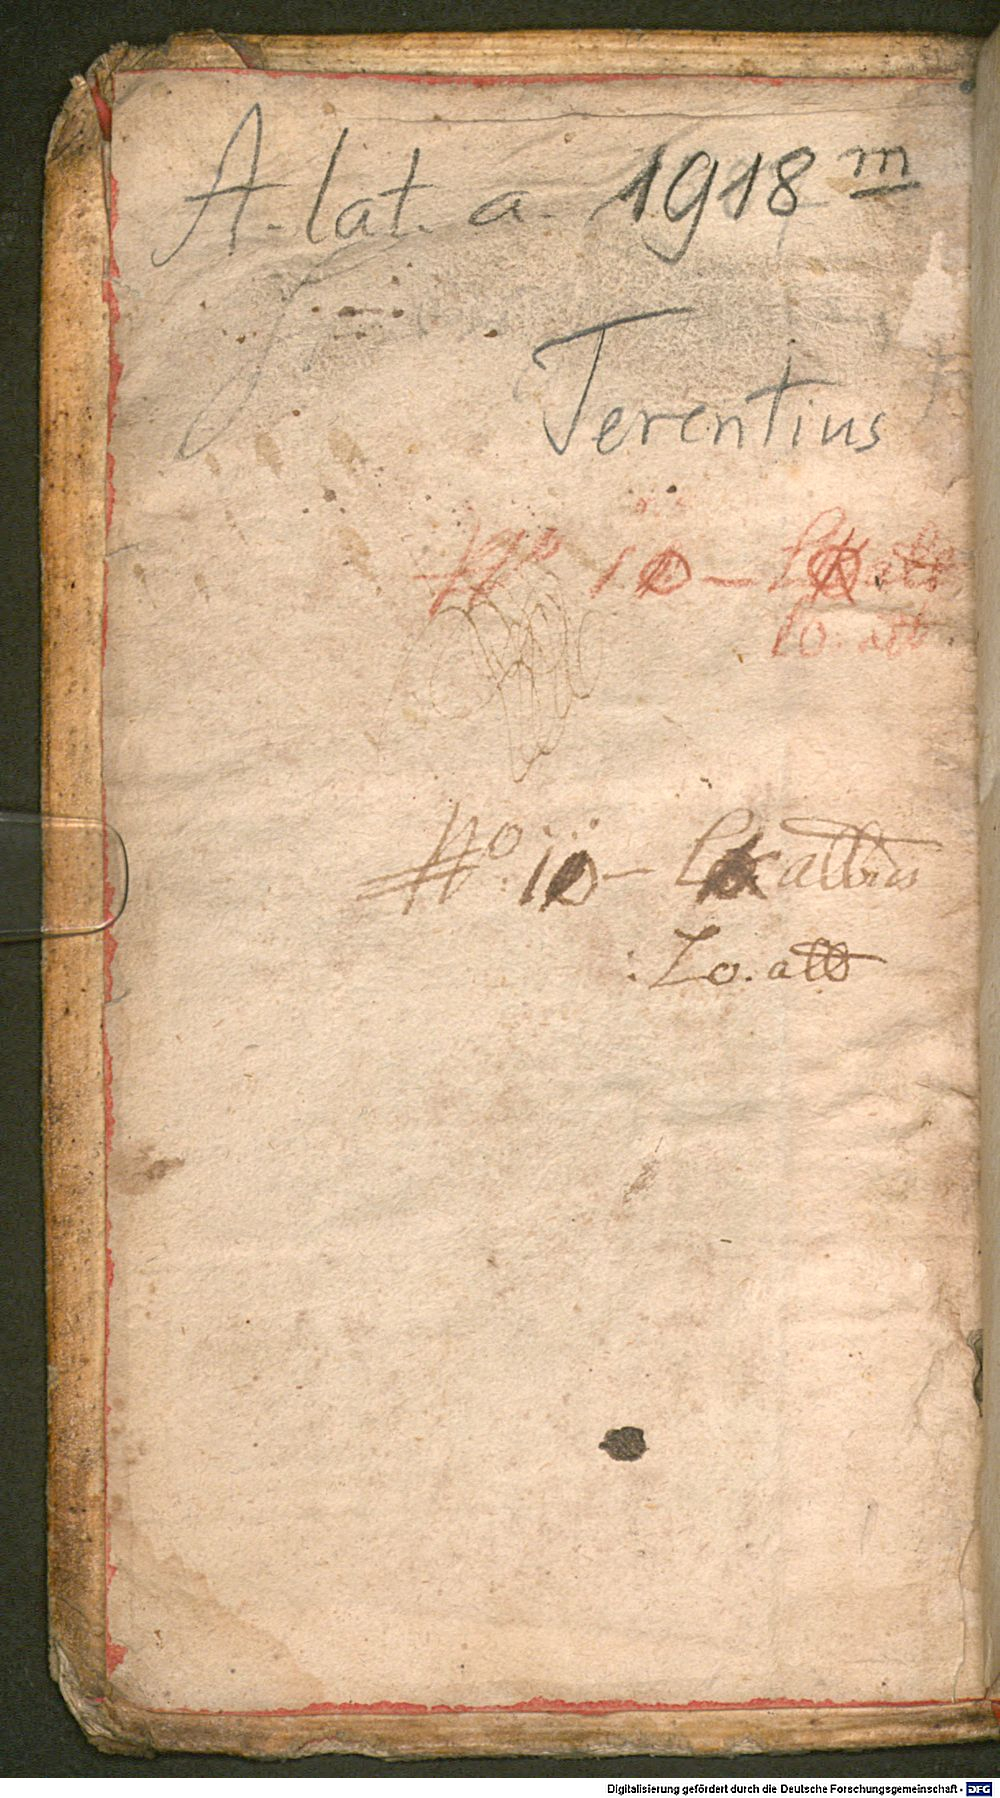 A. lat. a. 1918 m
Terentius
No 10 –
Lo. alb
No. 10 –
: Lo. alb
Digitalisierung gefördert durch die Deutsche Forschungsgemeinschaft - DFG